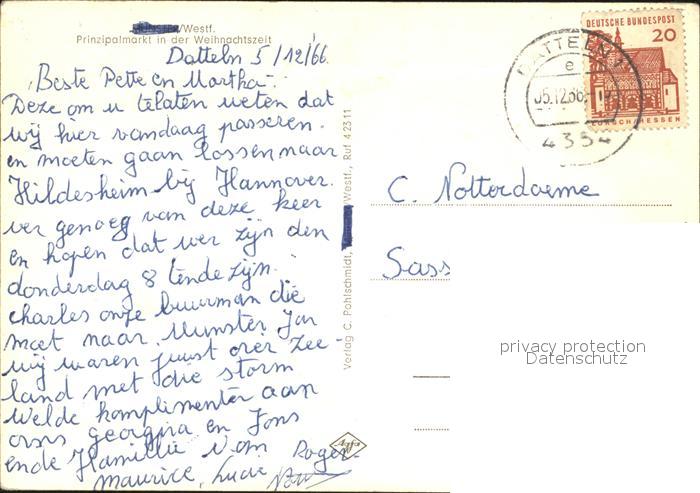 MÜNSTER/Westf.
Prinzipalmarkt in der Weihnachtszeit
Datteln 5/12/66
Beste Pette en Martha
Deze om u telaten weten dat
wij hier vandaag passeren.
en moeten gaan lossen naar
Hildesheim bij Hannover.
ver genoeg van deze keer
en hopen dat wer zijn den
donderdag 8 tende zijn.
charles onze buurman die
moet naar Munster
wij waren juust over Zee-
land met die storm
Welde komplimenten aan
onis georgina en Jons
ende Familie van Roger
maurice, Lucie
Verlag C. Pohlschmidt, Westf., Ruf 42311
Agfa
DEUTSCHE BUNDESPOST
20
LORSCH/HESSEN
DATTELN 1
e
05.12.66
4354
C. Notterdaeme
Sass
privacy protection
Datenschutz